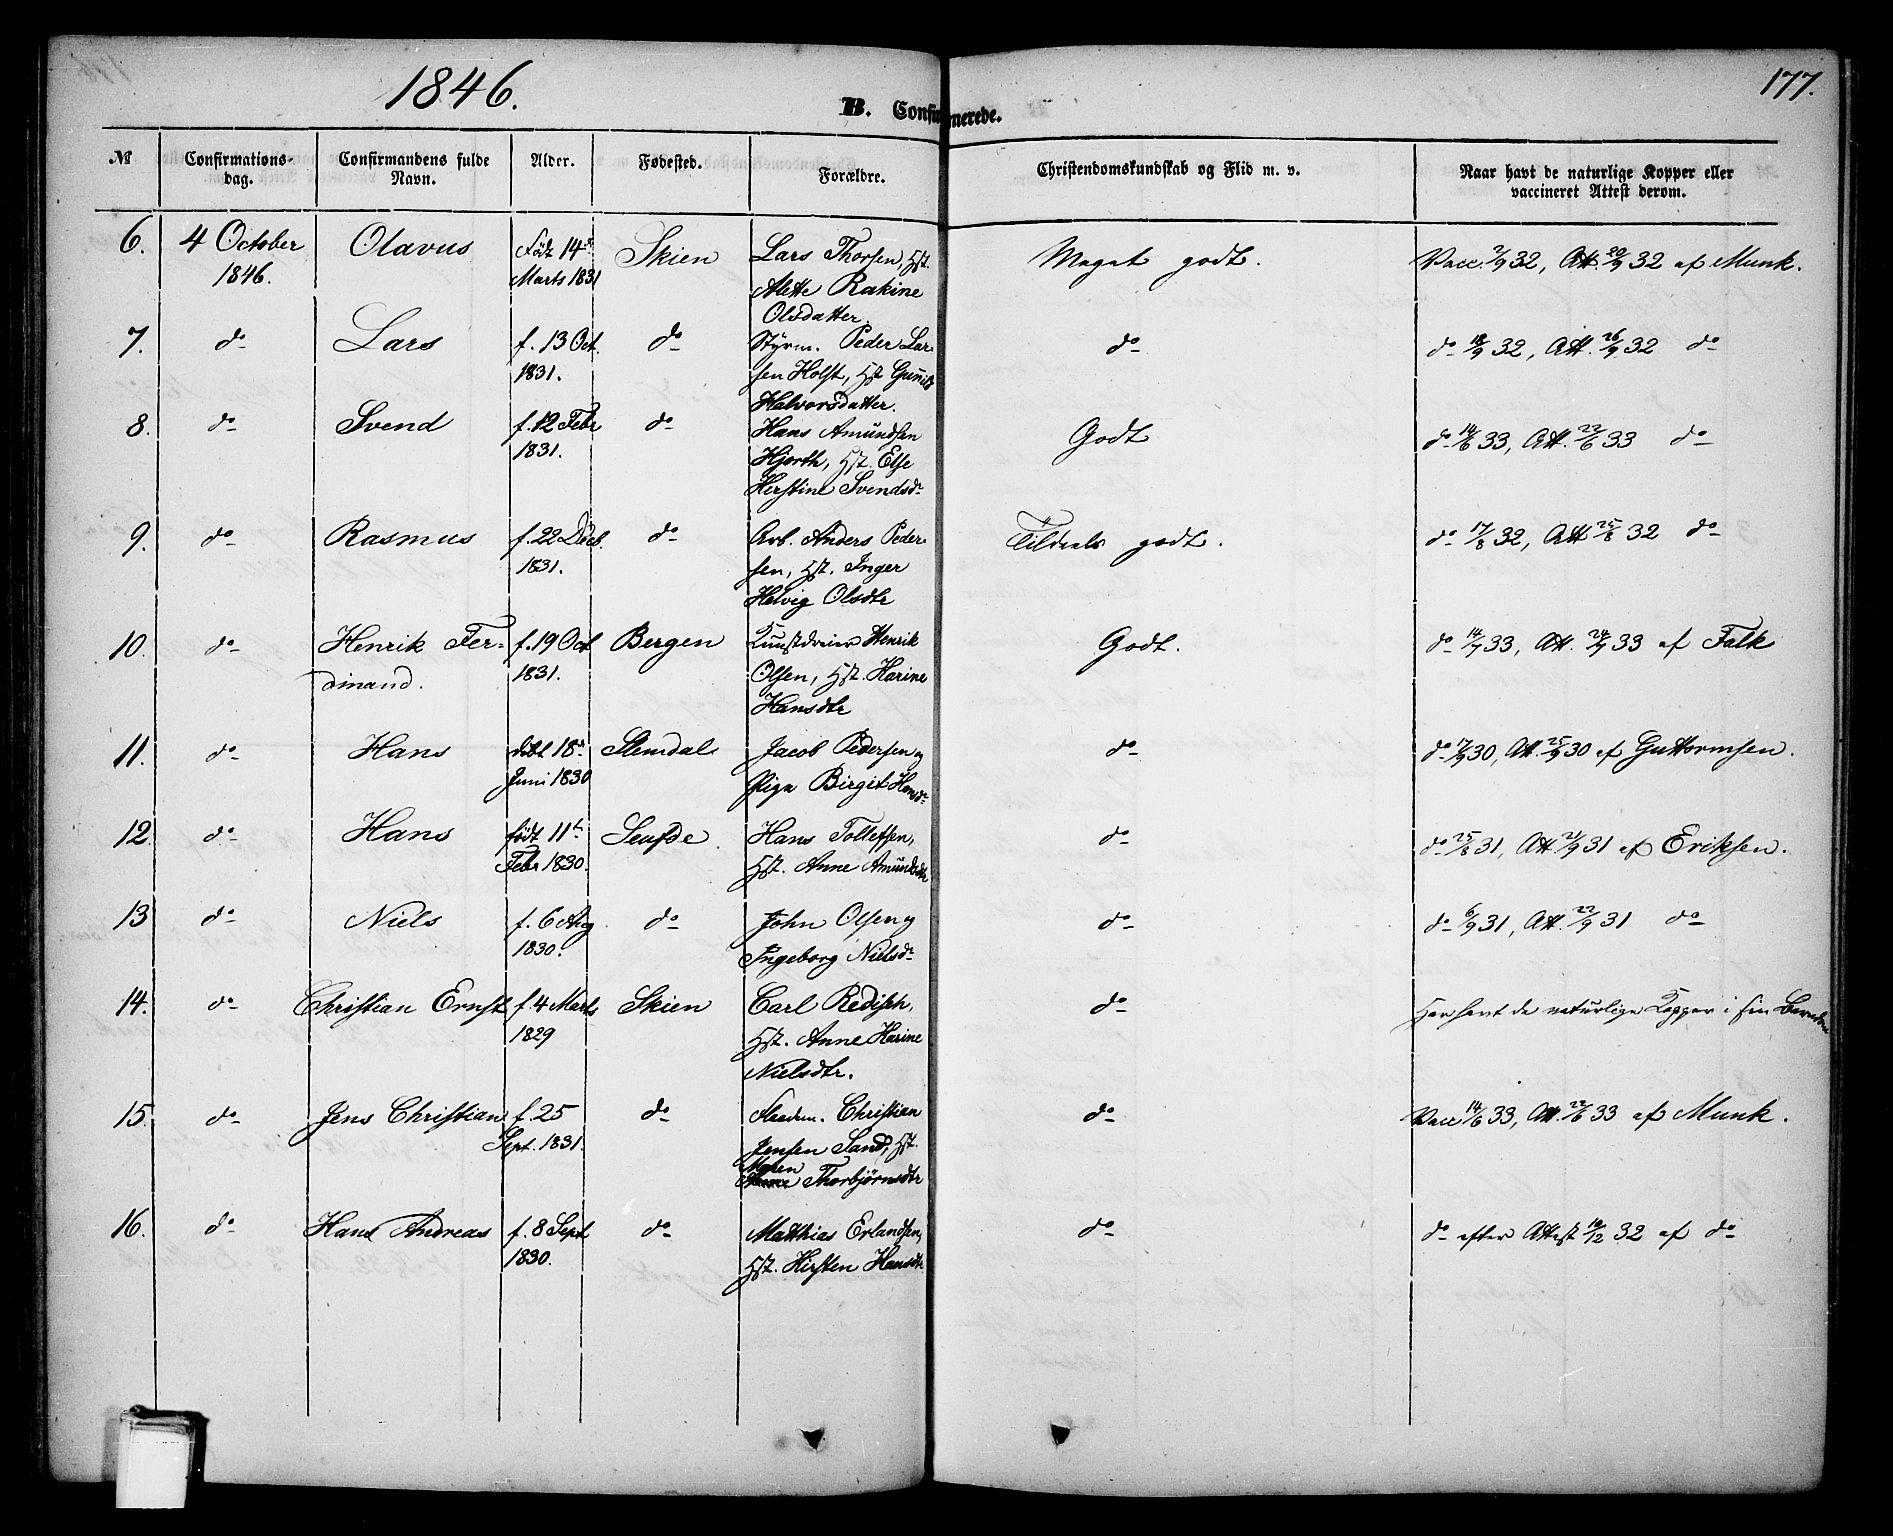 1846.
177.
B. Confirmerede.
№ Confirmations-dag. Confirmandens fulde Navn. Alder. Fødested. Forældre. Christendomskundskab og Flid m. v. Naar havt de naturlige Kopper eller vaccineret Attest derom.
6. 4 October Olavus Född 14de Skien Lars Thorsen, Hst. Meget godt. Vacc. 2/9 32, Att. 20/9 32 af Munk.
1846. Marts 1831 Alette Rakine
Olsdatter.
7. do Lars f. 13 Oct. do Styrm. Peder Lar- do do 18/9 32, Att. 26/9 32 do
1831. sen Holst, Hst Gunild
Halvorsdatter.
8. do Svend f. 12 Febr do Hans Amundsen Godt do 14/6 33, Att. 22/6 33 do
1831. Hjorth, Hst. Else
Kerstine Svendsdr
9. do Rasmus f. 22 Dec. do Arb. Anders Peder- Tildeels godt. do 17/8 32, Att 25/8 32 do
1831. sen, Hst. Inger
Helvig Olsdtr
10. do Henrik Fer- f. 19 Oct Bergen Kunstdreier Henrik Godt. do 14/9 33, Att. 24/9 33 af Falk
dinand. 1831. Olsen, Hst. Karine
Hansdtr
11. do Hans døbt 18de Slemdal Jacob Pedersen og do do 17/9 30, Att. 25/9 30 af Guttormsen.
Juni 1830 Pige Birgit Hansdr
12. do Hans født 11te Seufde. Hans Tollefsen, do do 25/8 31, Att. 21/9 31 af Eriksen.
Febr 1830. Hst. Anne Amundsdtr
13 do Niels f. 6 Aug do John Olsen og do do 6/9 31, Att. 22/9 31 do
1830. Ingeborg Nielsdr
14. do Christian Ernst f. 4 Marts Skien Carl Redisch, do Har havt de naturlige Kopper i sin Barndom
1829 Hst. Anne Karine
Nielsdtr.
15. do Jens Christian f. 25 do Christian do Vacc 14/6 33, Att. 22/6 33 af Munk.
Sept. 1831. Jensen Sand, Hst.
Maren
Thorbjørnsdtr
16. do Hans Andreas f. 8 Sept do Matthias Erlandsen, do do efter Attest 10/2 32 af do
1830. Hst. Kirsten Hansdtr